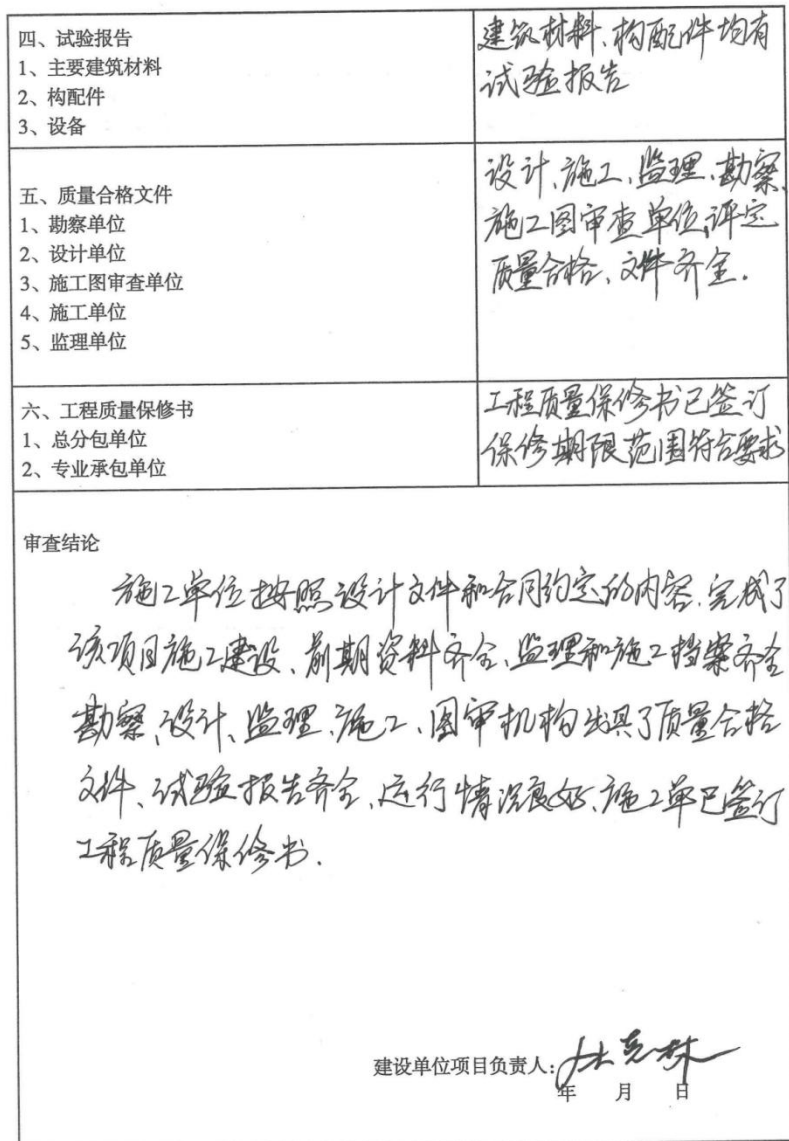 四、试验报告
1、主要建筑材料
2、构配件
3、设备
建筑材料、构配件均有
试验报告
五、质量合格文件
1、勘察单位
2、设计单位
3、施工图审查单位
4、施工单位
5、监理单位
设计、施工、监理、勘察、
施工图审查单位评定
质量合格、文件齐全.
六、工程质量保修书
1、总分包单位
2、专业承包单位
工程质量保修书已签订
保修期限范围符合要求
审查结论
施工单位按照设计文件和合同约定的内容.完成了
该项目施工建设、前期资料齐全、监理和施工档案齐全
勘察、设计、监理、施工、图审机构出具了质量合格
文件、试验报告齐全、运行情况良好、施工单已签订
工程质量保修书.
建设单位项目负责人:
年 月 日